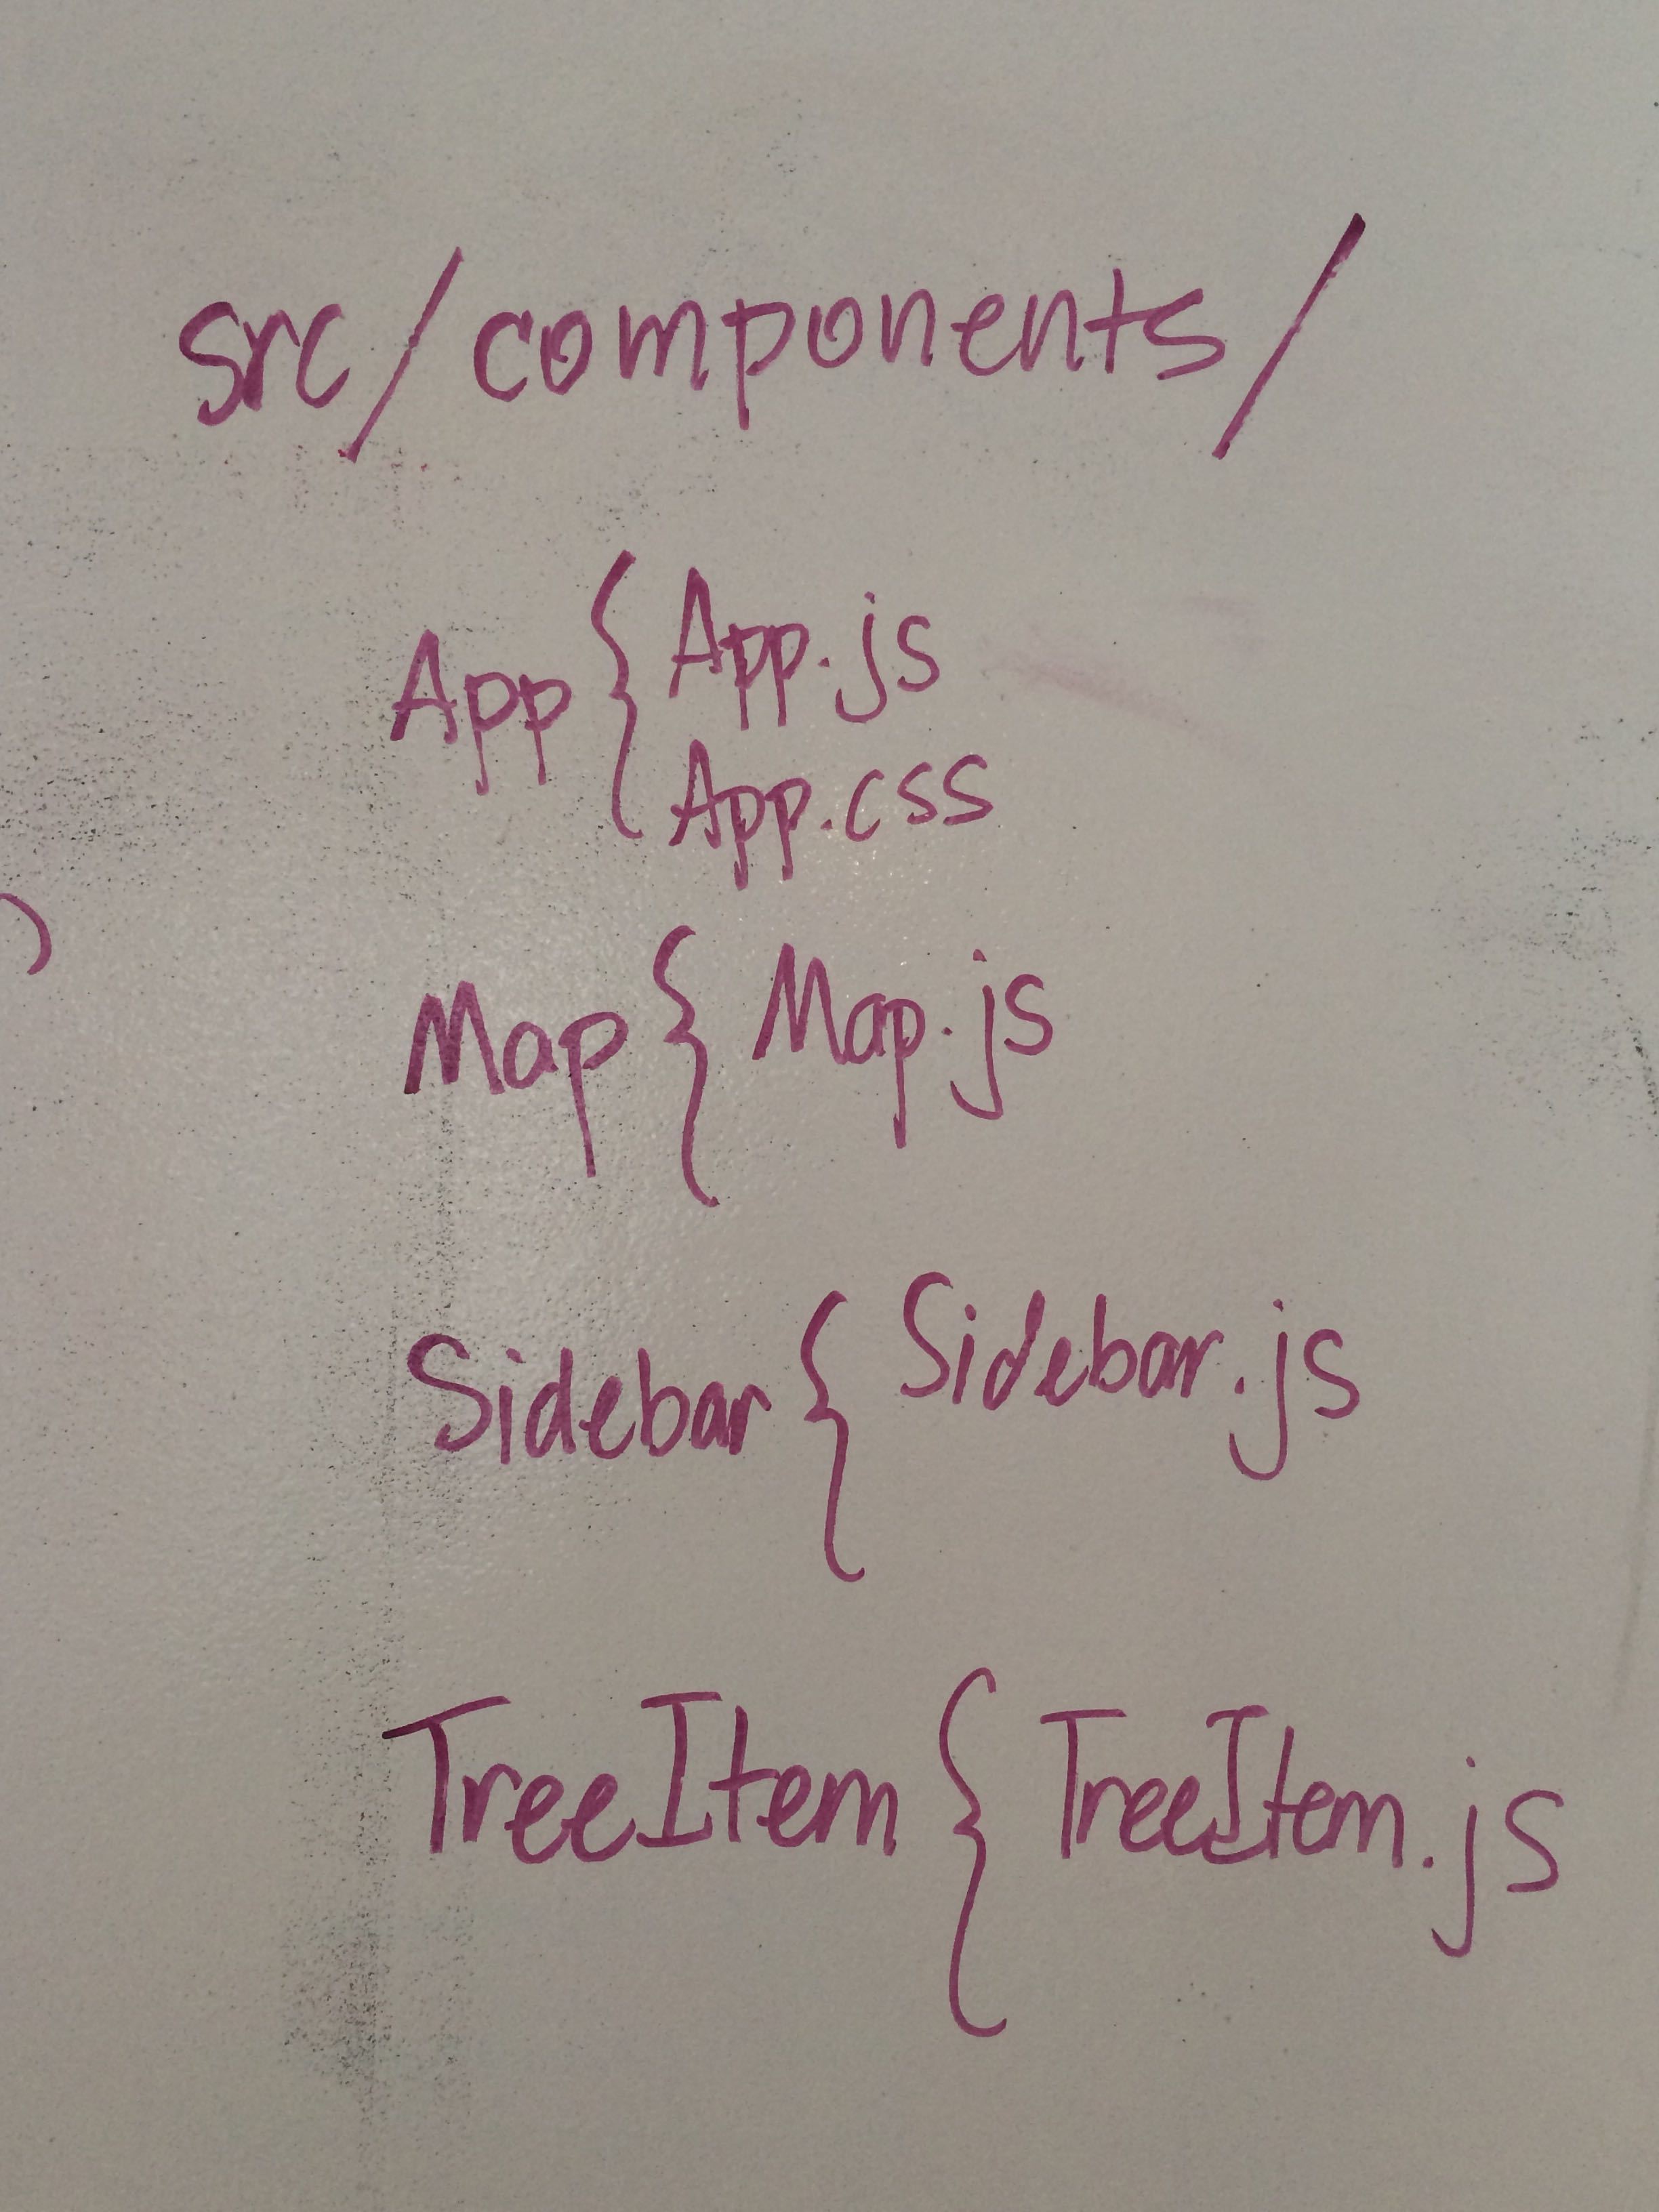 src/components/
App { App.js
App.css
Map { Map.js
Sidebar { Sidebar.js
TreeItem { TreeItem.js